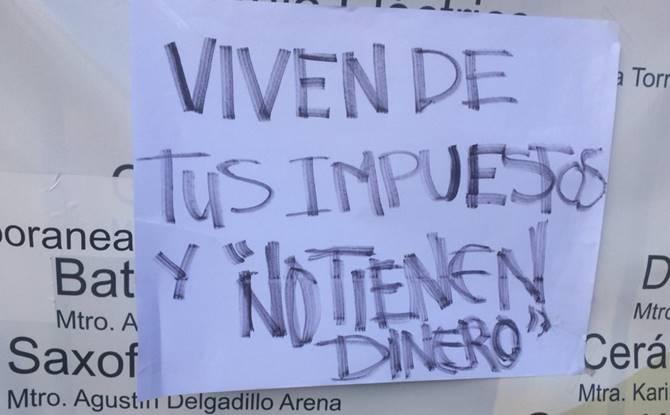 VIVEN DE
TUS IMPUESTOS
Y "NO TIENEN
DINERO"
a Torr
oranea
Bat
Mtro. A
Saxof
Mtro. Agustín Delgadillo Arena
D
Mtro
Cerá
Mtra. Kari